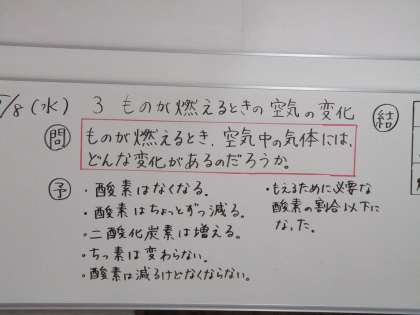 8(水) 3 ものが燃えるときの空気の変化
問 ものが燃えるとき、空気中の気体には、
どんな変化があるのだろうか。
予 ・酸素はなくなる。
・酸素はちょっとずつ減る。
・二酸化炭素は増える。
・ちっ素は変わらない。
・酸素は減るけどなくならない。
・もえるために必要な
酸素の割合以下に
なった。
結